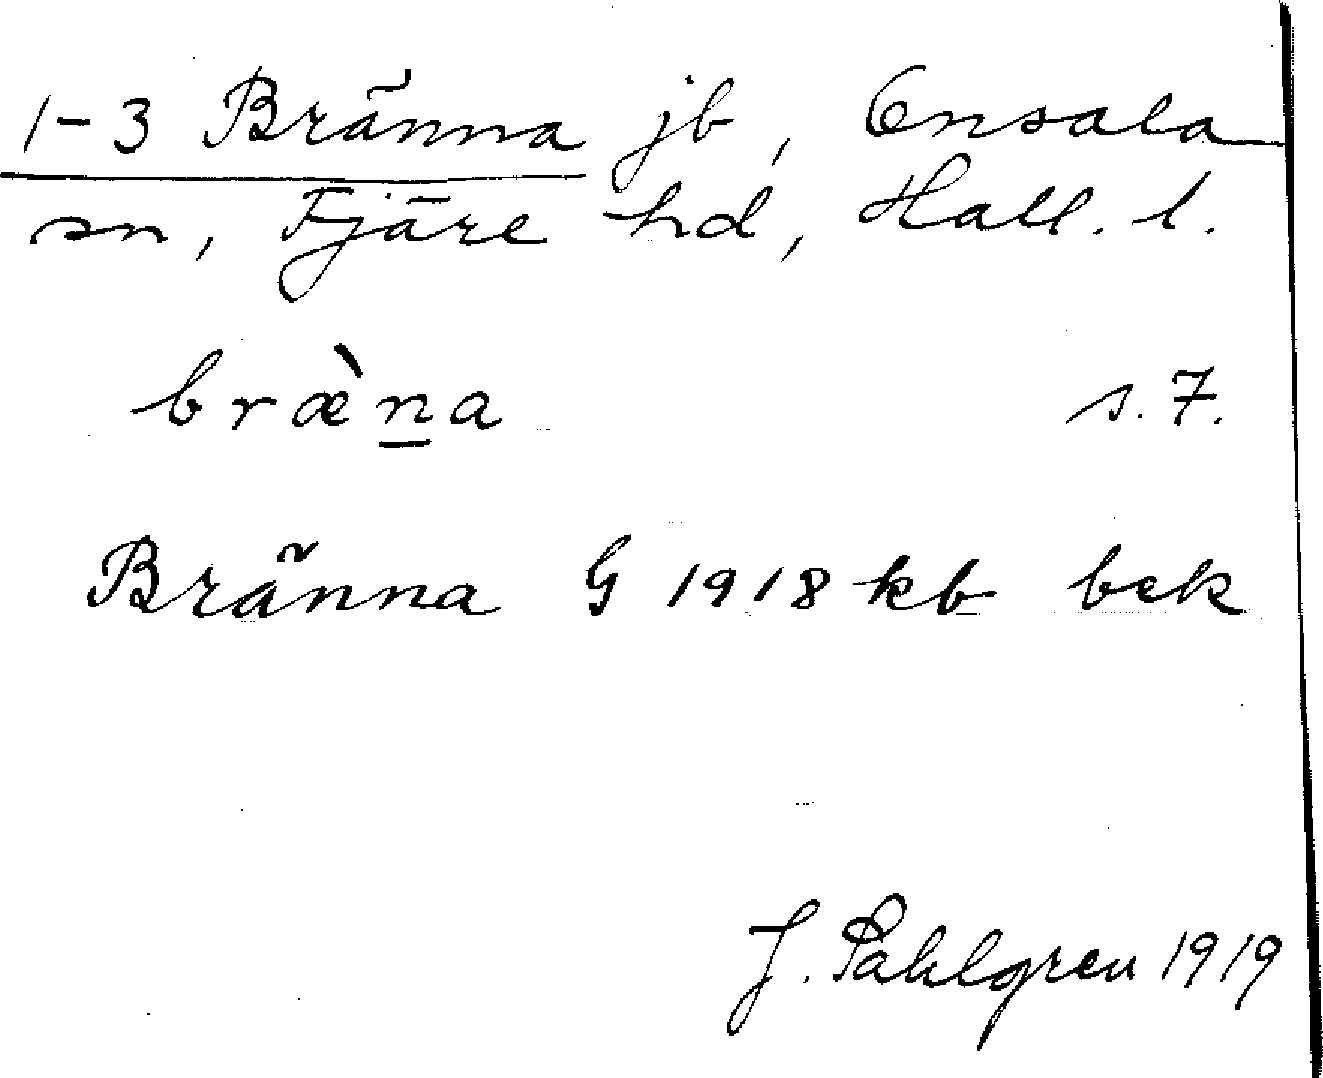 1-3 Bränna jb, Onsala
sn, Fjäre hd, Hall. l.
bræ̀n̲a s. 7.
Bränna G 1918 kb bek
J. Sahlgren 1919